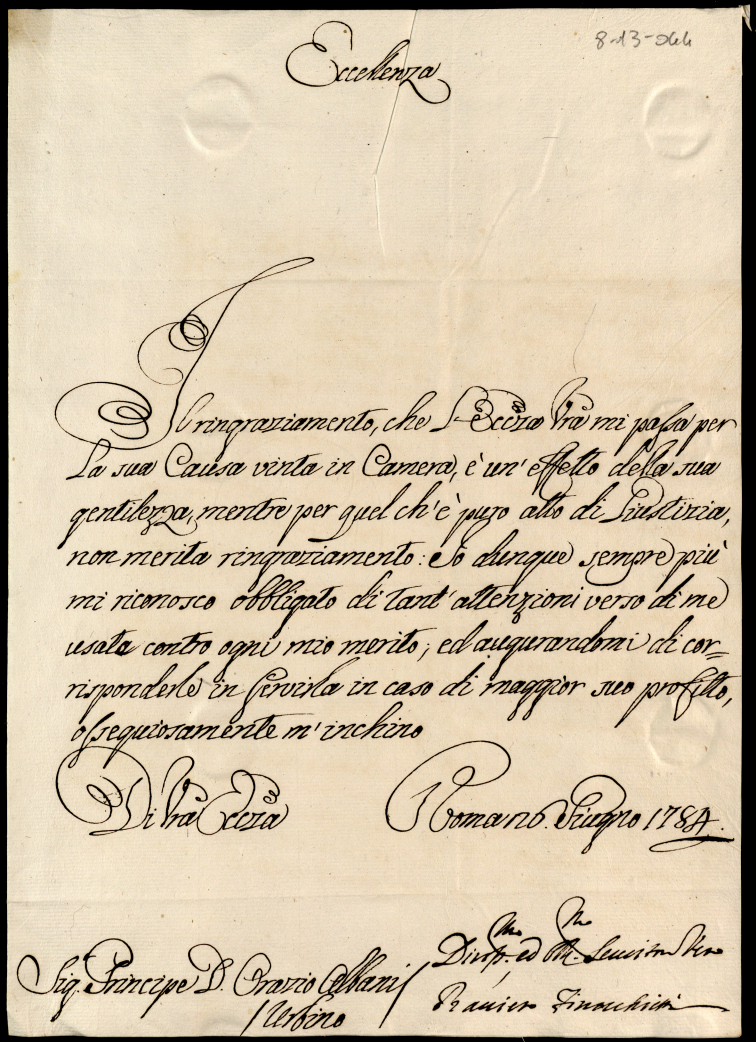 8-13-044
Eccellenza
Il ringraziamento, che L'Eccza Vra mi passa per
La sua Causa vinta in Camera, è un' effetto della sua
gentilezza, mentre per quel ch'è puro atto di Giustizia,
non merita ringraziamento: Io dunque sempre più
mi riconosco obbligato di tant' attenzioni verso di me
usata contro ogni mio merito; ed augurandomi di cor=
risponderle in servirla in caso di maggior suo profitto,
ossequiosamente m' inchino
Di Vra Eccza
Roma 26. Giugno 1784.
Sig. Principe D. Orazio Albani
/ Urbino
Divmo. ed Obb. Servitor Vero
Ranier Finocchietti